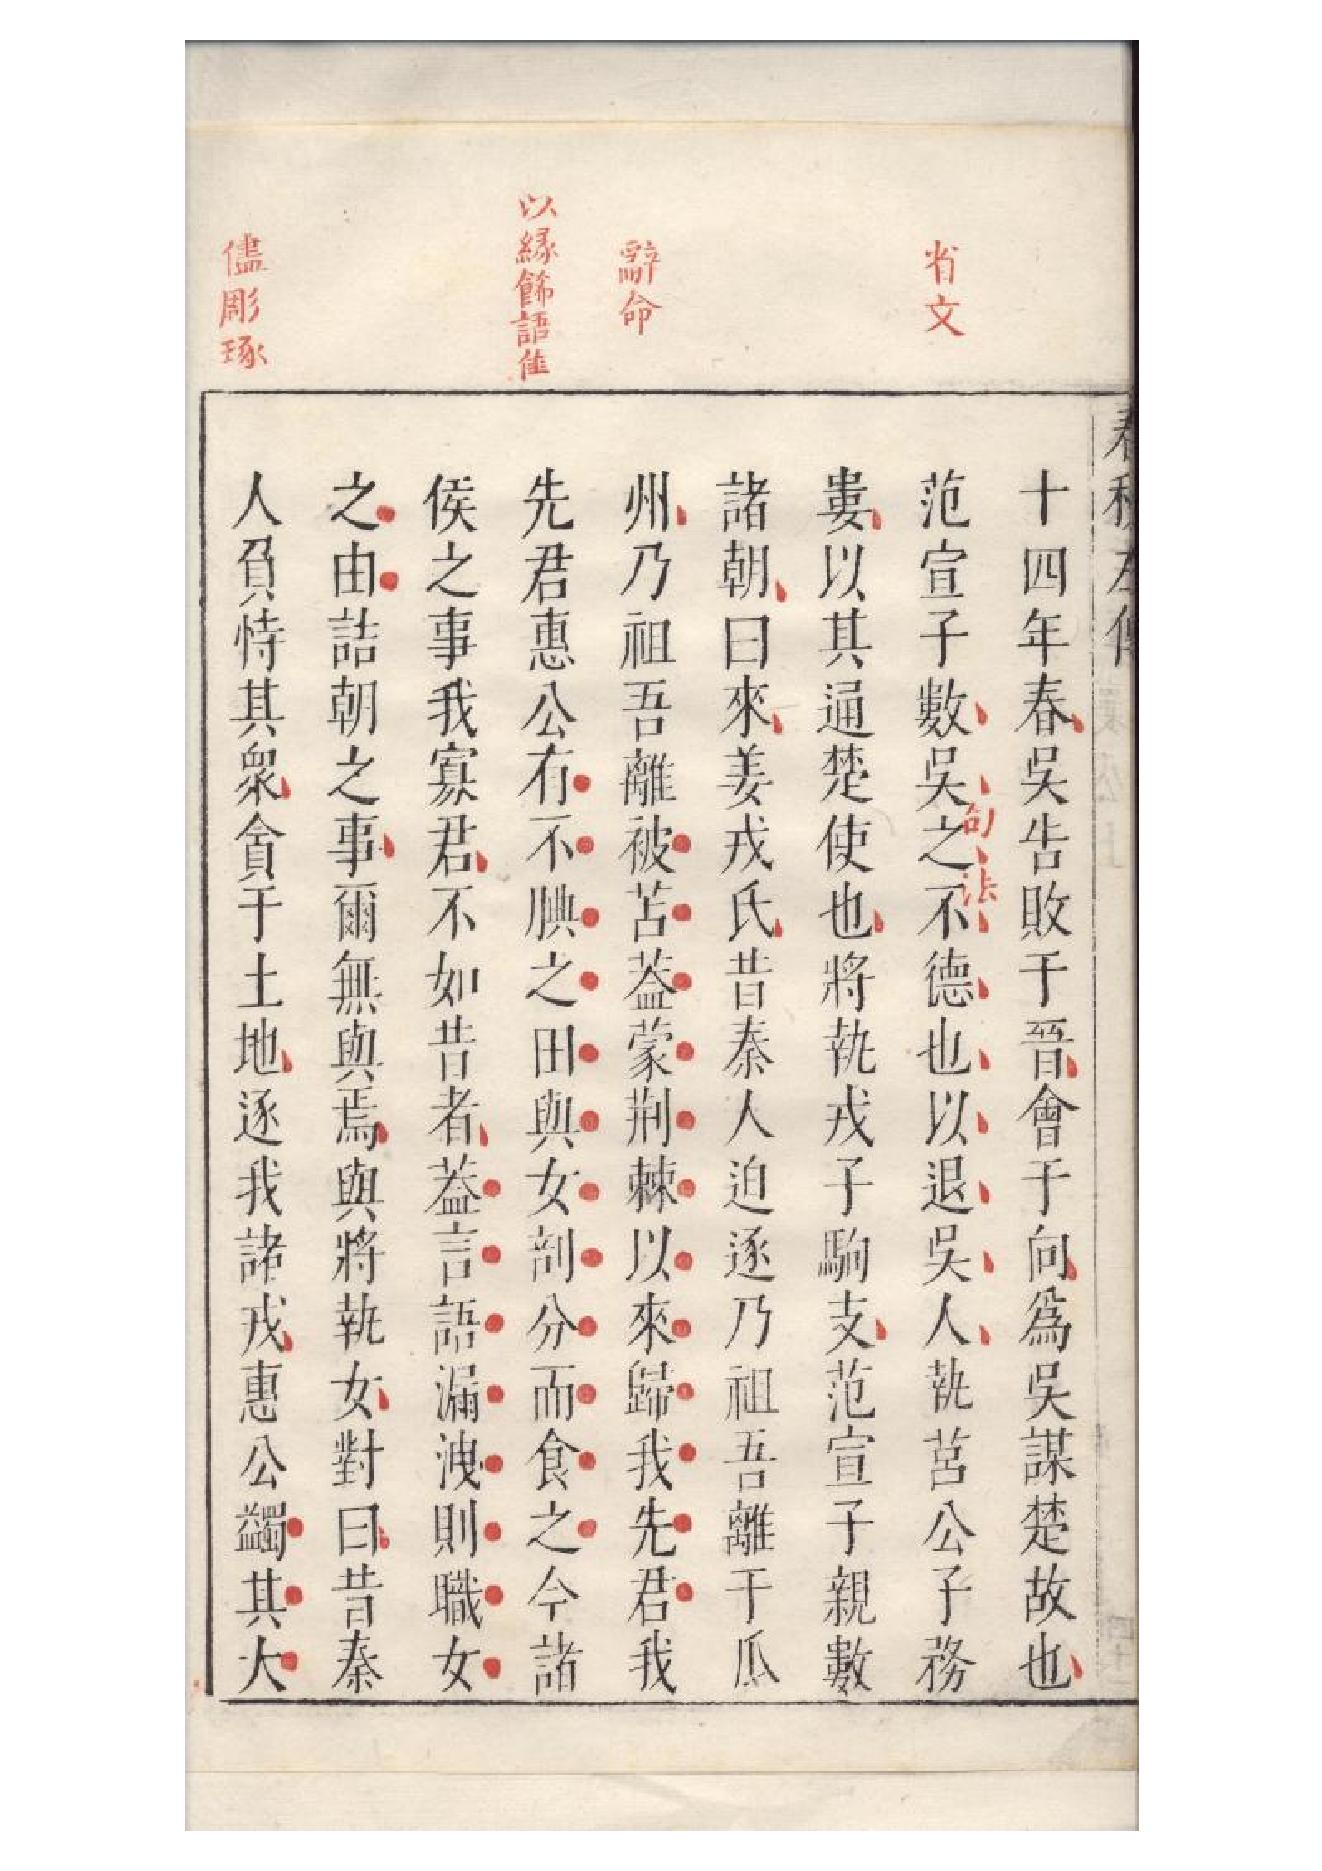 省文
辭命
以緣飾語佳
儘彫琢
春秋左傳
十四年春吳告敗于晉會于向爲吳謀楚故也
范宣子數吳之不德也以退吳人執莒公子務
句法
婁以其通楚使也將執戎子駒支范宣子親數
諸朝曰來姜戎氏昔秦人迫逐乃祖吾離于瓜
州乃祖吾離被苫葢蒙荆棘以來歸我先君我
先君惠公有不腆之田與女剖分而食之今諸
侯之事我寡君不如昔者葢言語漏洩則職女
之由詰朝之事爾無與焉與將執女對曰昔秦
人負恃其衆貪于土地逐我諸戎惠公蠲其大